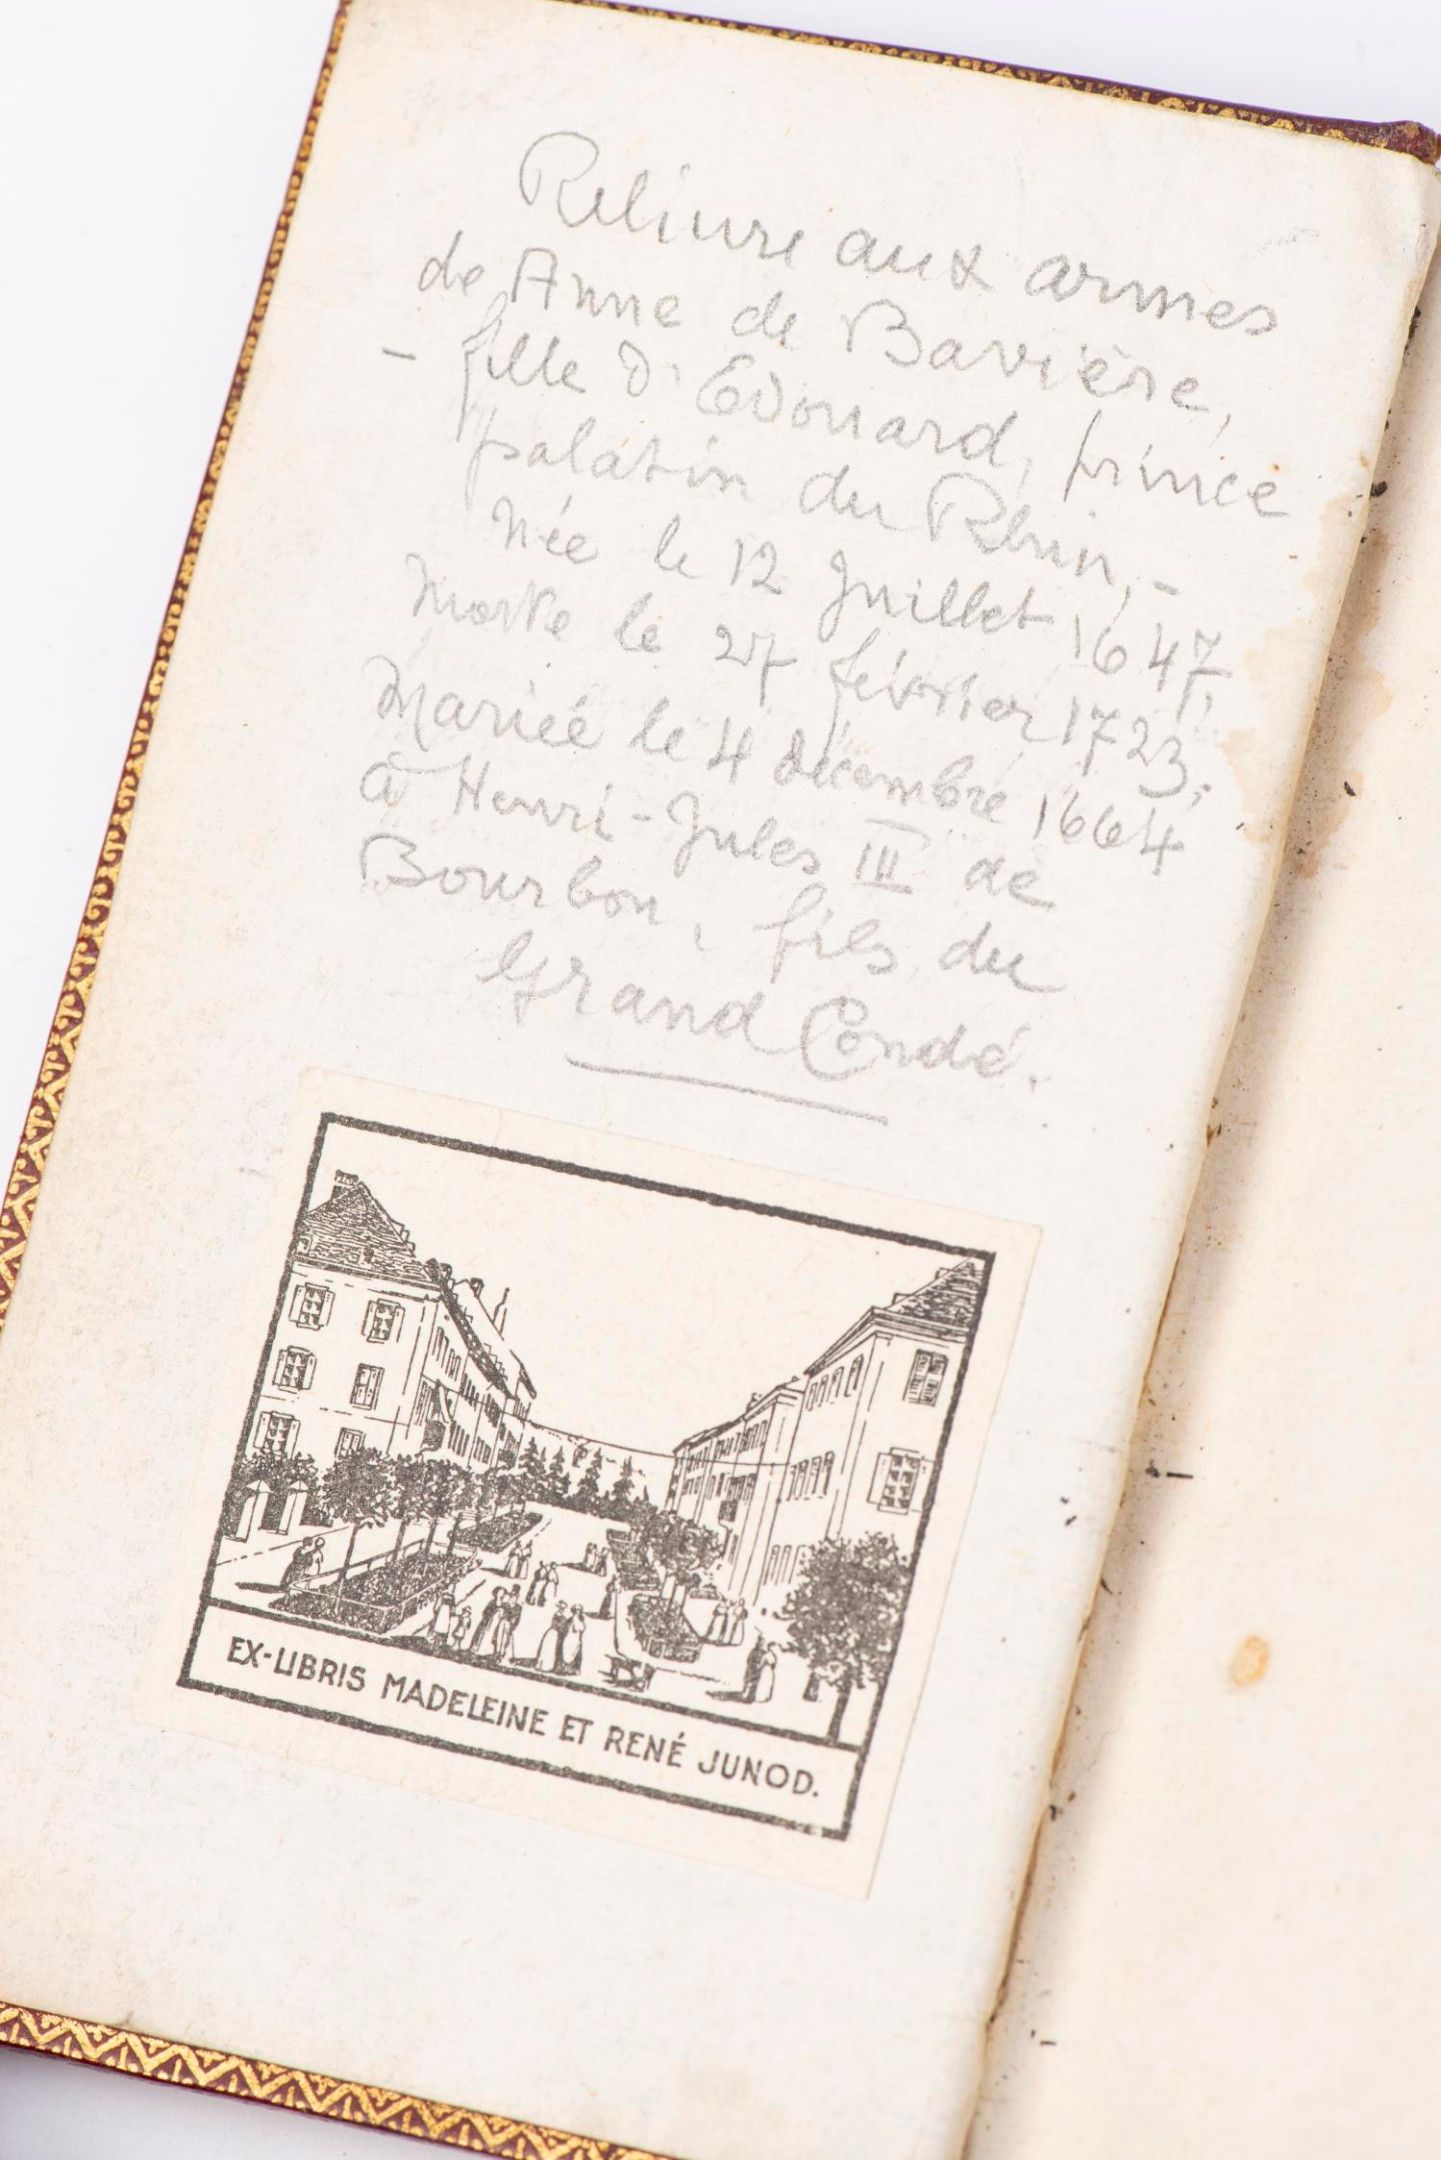 Reliure aux armes
de Anne de Bavière,
- fille d'Edouard, prince
palatin du Rhin, -
Née le 12 Juillet 1647,
Morte le 27 février 1723,
Mariée le 4 décembre 1664
à Henri-Jules III de
Bourbon, fils du
Grand Condé.
EX-LIBRIS MADELEINE ET RENÉ JUNOD.